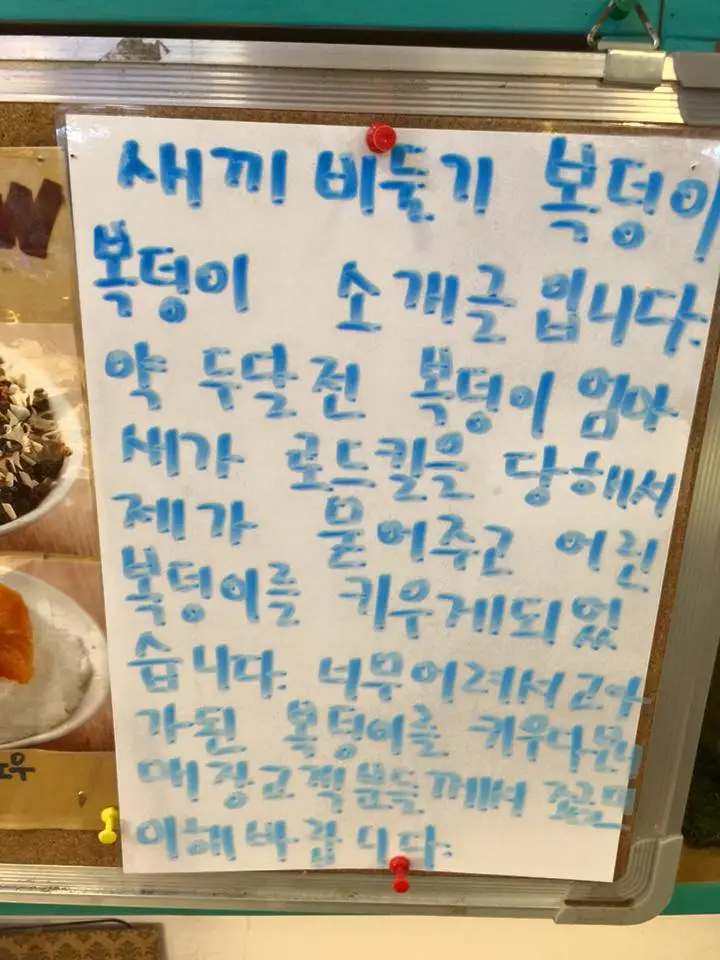 새끼 비둘기 복덩이
복덩이 소개글 입니다.
약 두달전 복덩이 엄마
새가 로드킬을 당해서
제가 묻어주고 어린
복덩이를 키우게되었
습니다. 너무어려서 고아
가된 복덩이를 키우다보니
매장고객분들께서 조금만
이해바랍니다.
W
우